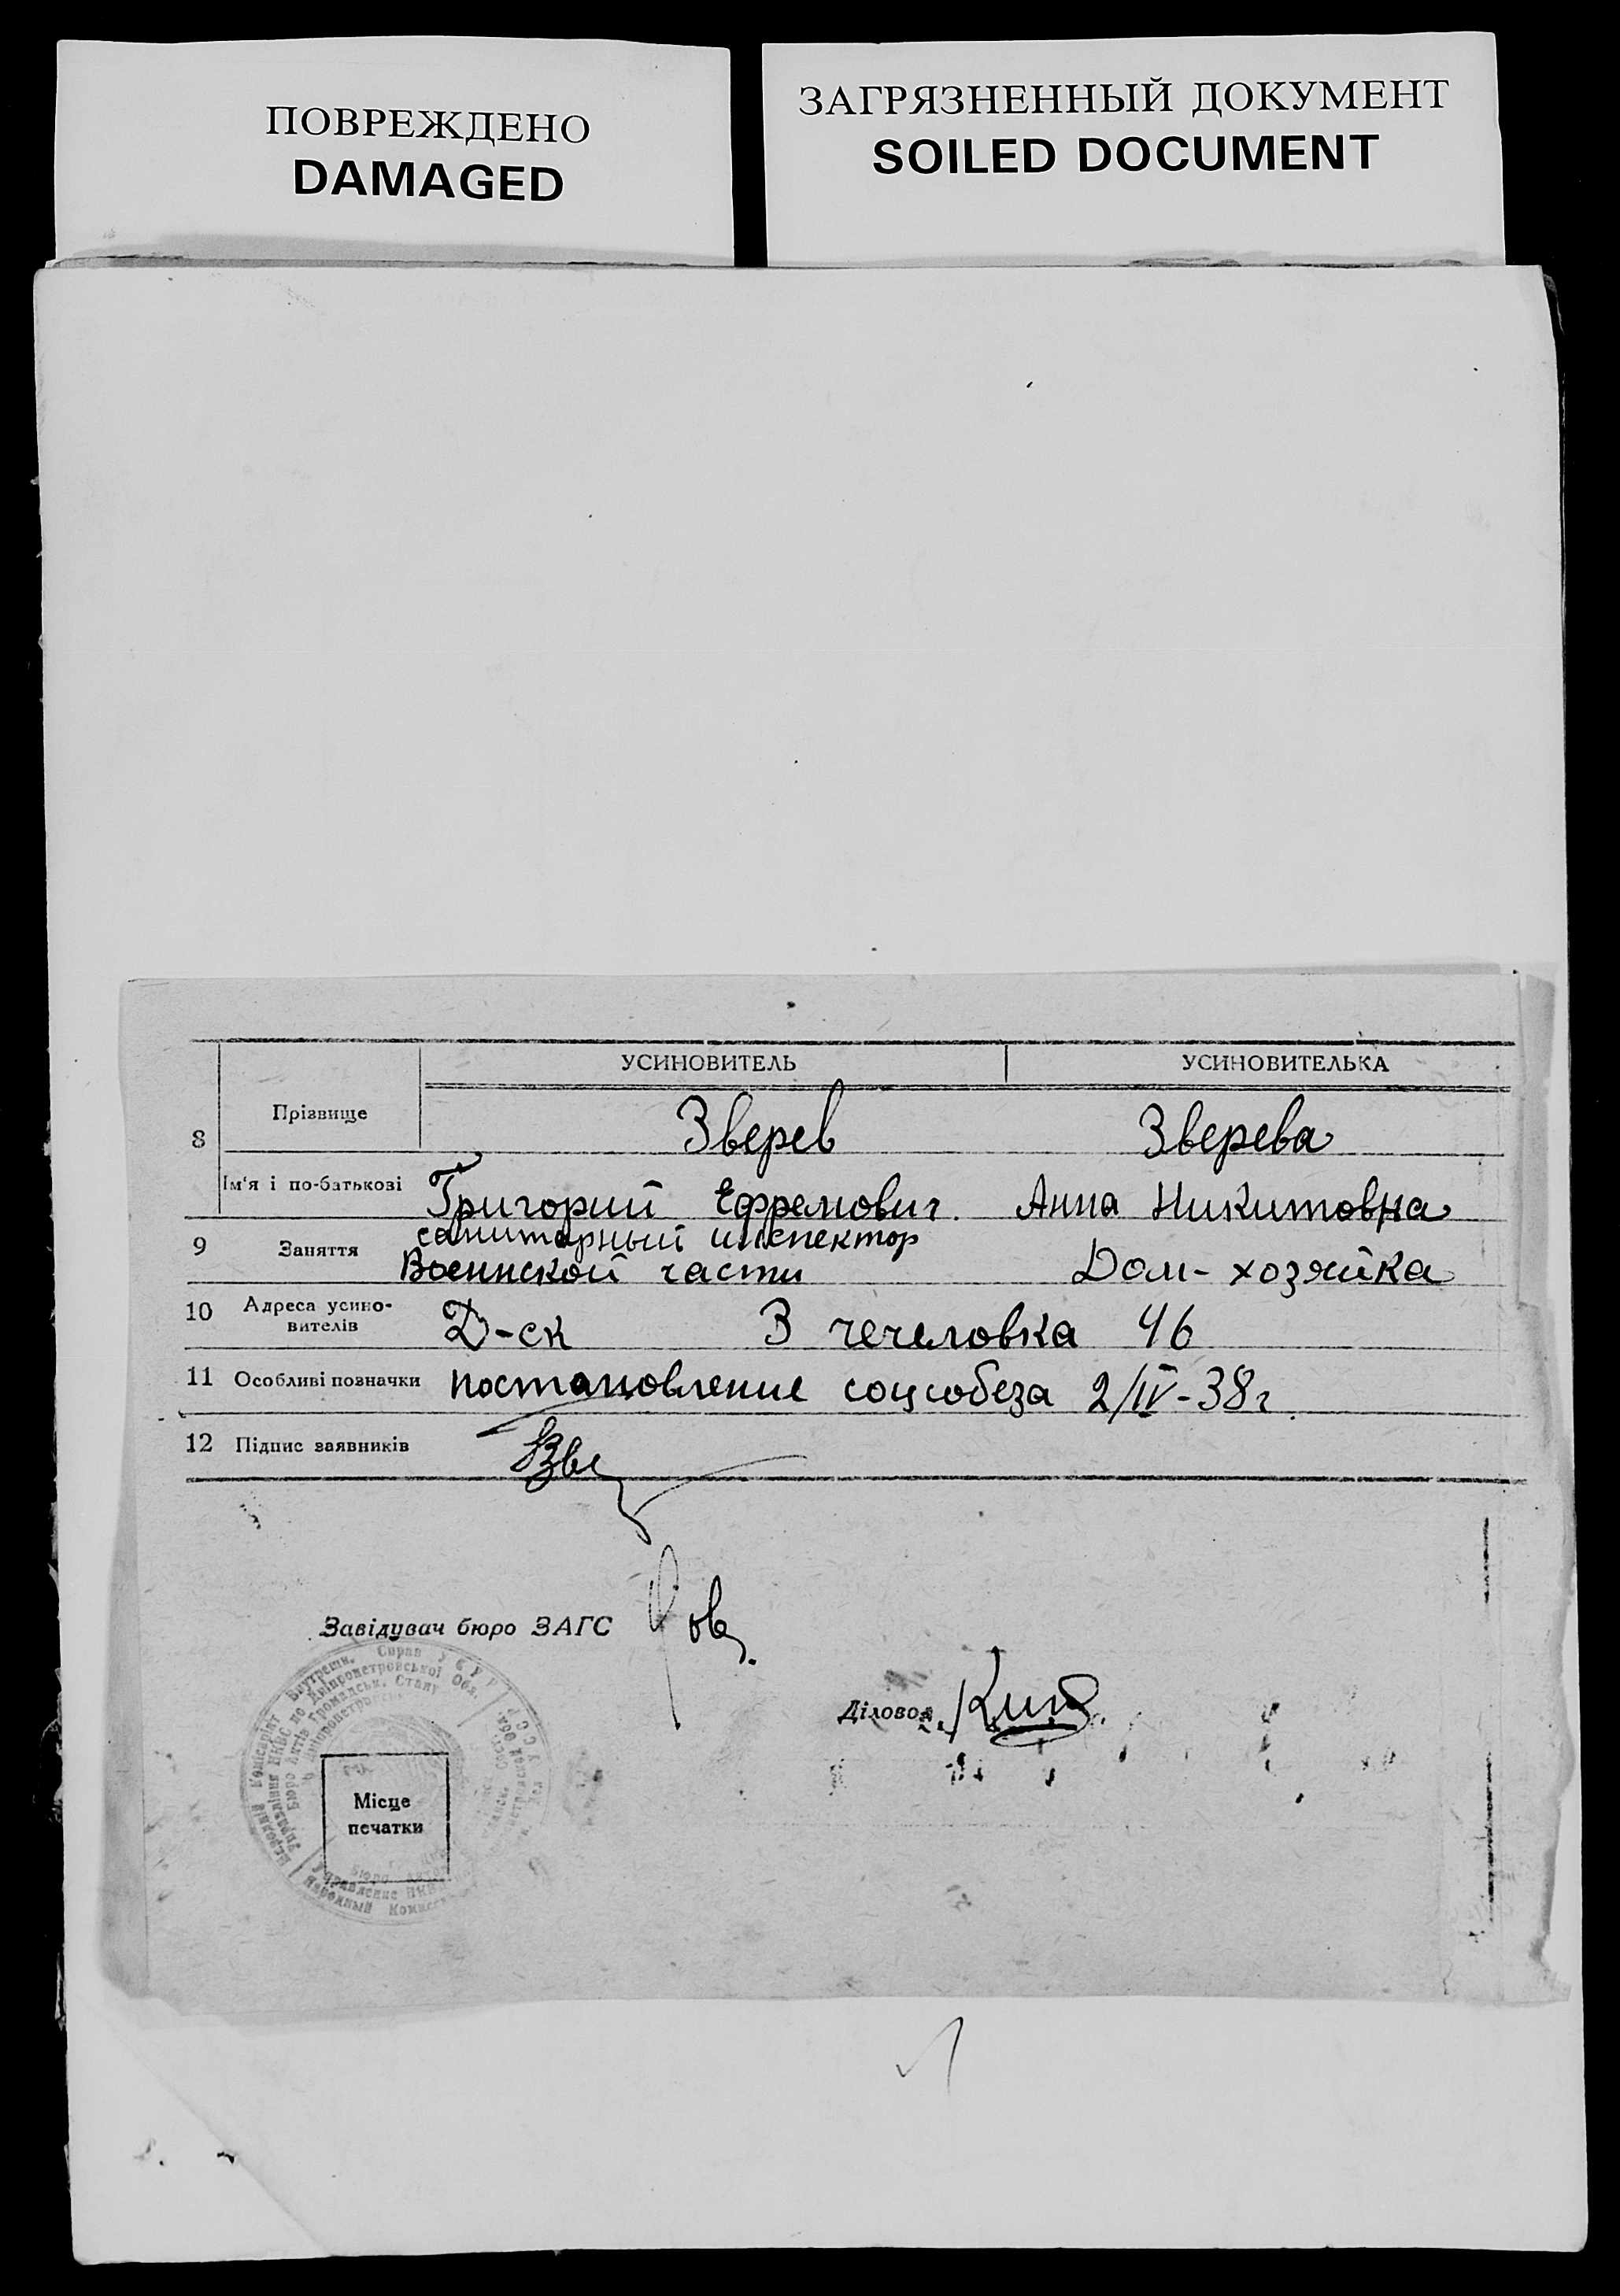 ПОВРЕЖДЕНО
DAMAGED
ЗАГРЯЗНЕННЫЙ ДОКУМЕНТ
SOILED DOCUMENT
УСИНОВИТЕЛЬ УСИНОВИТЕЛЬКА
8 Прізвище Зверев Зверева
Ім'я і по-батькові Григорий Ефремович. Анна Никитовна
9 Заняття санитарный инспектор
Воинской части Дом-хозяйка
10 Адреса усино-
вителів Д-ск 3 чечеловка 46
11 Особливі позначки постановление соцсобеза 2/IV-38г.
12 Підпис заявників Зве
Завідувач бюро ЗАГС
Діловод
Народній Комісаріат Внутрешн. Справ УСРР
Управління НКВС по Дніпропетровської Обл.
Бюро Актів Громадськ. Стану
Управление НКВ
Народный Комисс
Місце
печатки